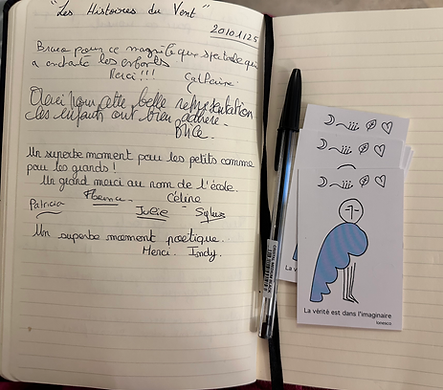 "Les Histoires du Vent"
20/01/25
Bravo pour ce magnifique spectacle qui
a enchanté les enfants
Merci !!! Catherine
Merci pour cette belle représentation
les enfants ont bien adhéré.
Un superbe moment pour les petits comme
pour les grands !
Un grand merci au nom de l'école.
Patricia Céline
Julie
Un superbe moment poétique.
Merci. Indy.
La vérité est dans l'imaginaire
Ionesco
La v